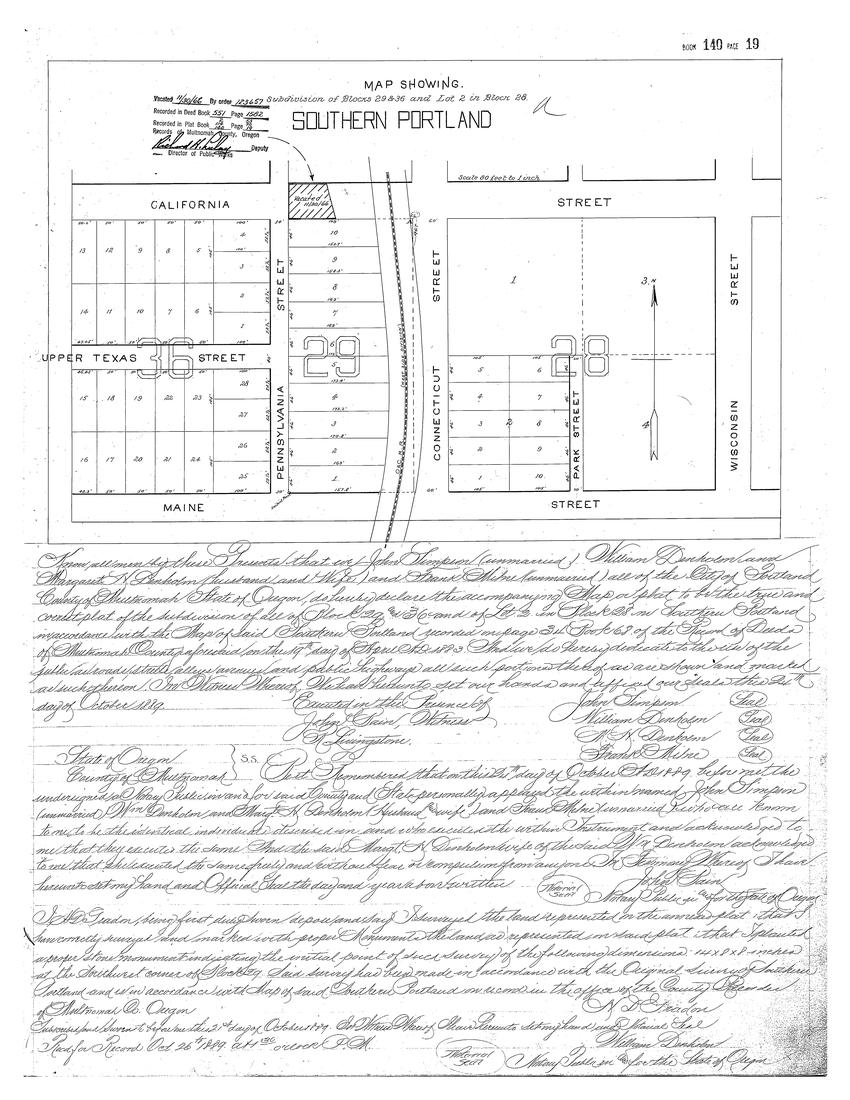 BOOK 140 PAGE 19
MAP SHOWING.
Subdivision of Blocks 29 & 36 and Lot 2 in Block 28.
SOUTHERN PORTLAND
Vacated 11/30/66 By order 123657
Recorded in Deed Book 551 Page 1582
Recorded in Plat Book Page
Records of Multnomah County, Oregon
Deputy
Director of Public Works
Scale 80 feet to 1 inch
Vacated
11/30/66
CALIFORNIA STREET
UPPER TEXAS STREET
PENNSYLVANIA STREET
CONNECTICUT STREET
PARK STREET
WISCONSIN STREET
MAINE STREET
36
29
28
13 12 9 8 5 4
3
14 11 10 7 6 2
1
15 18 19 22 23 28
27
16 17 20 21 24 26
25
10
9
8
7
6
5
4
3
2
1
1
3
N
5 6
4 7
3 2 8
2 9
1 10
4
Know all men by these Presents that we John Simpson (unmarried) William Denholm and
Margaret N. Denholm (Husband and Wife) and Frank Milne (unmarried) all of the City of Portland
County of Multnomah State of Oregon, do hereby declare the accompanying Map, a plat to be the true and
correct plat of the subdivision of all of Block 29 & 36 and of Lot 2 in Block 28 in Southern Portland
in accordance with the Map of said Southern Portland recorded on page 34 Book 68 of the Record of Deeds
of Multnomah County aforesaid on the 19th day of April A.D. 1883. And we do hereby dedicate to the use of the
public as roads, streets, alleys, avenues and public highways all such portions thereof as are shown and marked
as such thereon. In Witness Whereof We have hereunto set our hands and affixed our seals this 24th
day of October 1889.
Executed in the Presence of
John Bain, Witness
R. Livingstone.
John Simpson (Seal)
William Denholm (Seal)
M. N. Denholm (Seal)
Frank Milne (Seal)
State of Oregon
County of Multnomah } S.S.
Be it Remembered that on this 25th day of October A.D. 1889, before me the
undersigned a Notary Public in and for said County and State personally appeared the within named John Simpson
(unmarried) Wm Denholm and Margt. N. Denholm (Husband & wife) and Frank Milne (unmarried) who are known
to me to be the identical individuals described in and who executed the within Instrument and acknowledged to
me that they executed the same. And the said Margt. N. Denholm wife of the said Wm Denholm acknowledged
to me that she executed the same freely and without fear or compulsion from anyone. In Testimony Whereof I have
hereunto set my hand and Official Seal the day and year above written
Notarial Seal
John Bain
Notary Public in & for the State of Oregon
being first duly sworn depose and say I surveyed the land represented on the annexed plat: that I
have correctly surveyed and marked with proper Monuments the land as represented in said plat: that I planted
a proper stone monument indicating the initial point of such survey of the following dimensions: 14x8x8 inches
at the Southwest corner of Block 29. Said survey has been made in accordance with the Original Survey of Southern
Portland and is in accordance with Map of said Southern Portland on record in the office of the County Recorder
of Multnomah Co. Oregon
Subscribed and Sworn to before me this day of October 1889. In Witness Whereof I have Hereunto set my hand and Notarial Seal
William Denholm
Rec'd for Record Oct 26th 1889 at o'clock P.M.
Notarial Seal
Notary Public in & for the State of Oregon